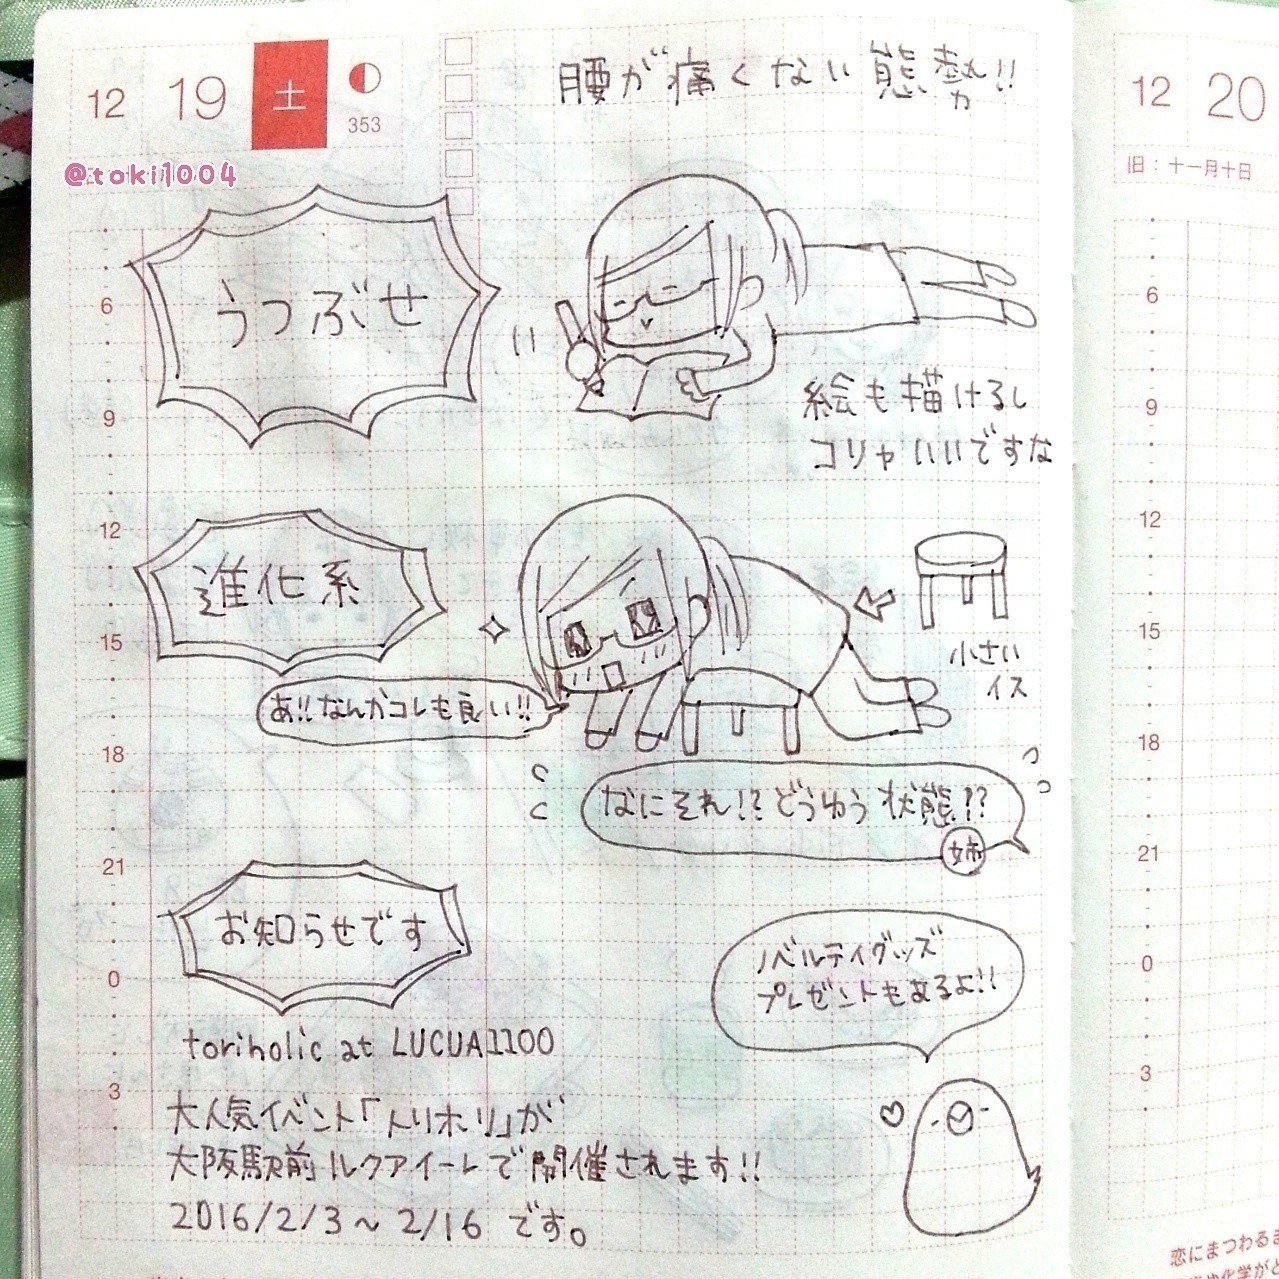 12 19 土
353
@toki1004
腰が痛くない態勢!!
うつぶせ
絵も描けるし
コリャいいですな
進化系
小さい
イス
あ!!なんかコレも良い!!
なにそれ!?どうゆう状態!?
姉
お知らせです
ノベルティグッズ
プレゼントもあるよ!!
toriholic at LUCUA1100
大人気イベント「トリホリ」が
大阪駅前ルクアイーレで開催されます!!
2016/2/3～2/16 です。
6
9
12
15
18
21
0
3
12 20
旧：十一月十日
6
9
12
15
18
21
0
3
恋にまつわるま